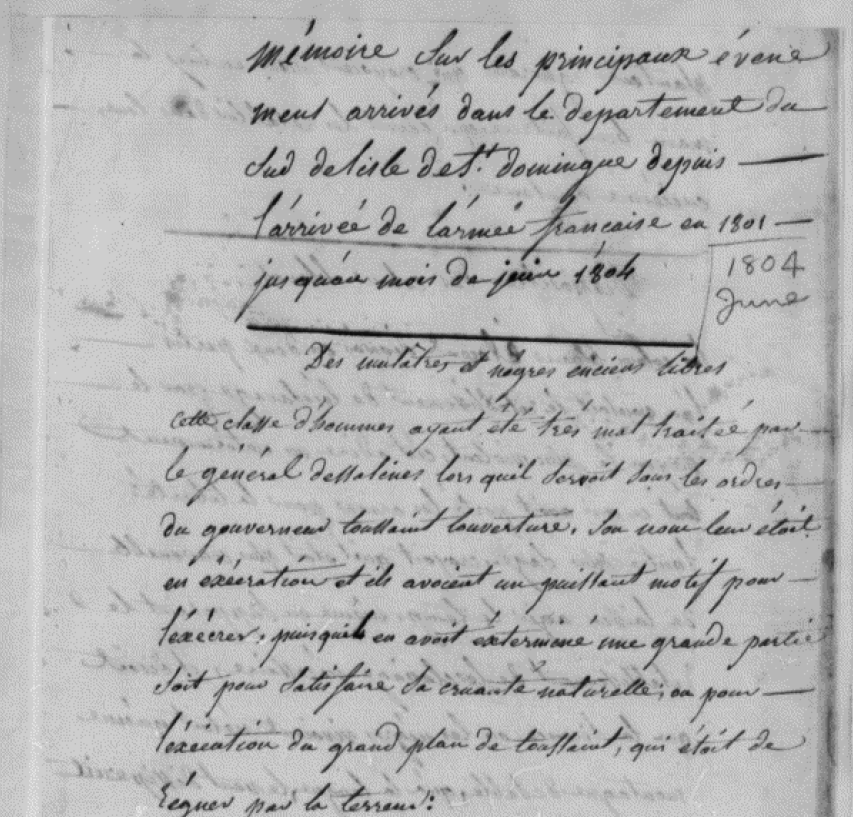 Mémoire sur les principaux évene
ment arrivés dans le departement du
Sud de l'isle de St. domingue depuis
l'arrivée de l'armée francaise en 1801
jusqu'au mois de juin 1804
1804
June
Des mulatres et négres enciens libres
cette classe d'hommes ayant été très mal traiteé par
le général dessalines lors quil servoit sous les ordres
du gouverneur toussaint louverture, son nom leur étoit
en éxécration et ils avoient un puissant motif pour
l'éxécrer, puisquil en avoit éxterminé une grande partie
soit pour satisfaire sa cruauté naturelle, ou pour
l'éxécution du grand plan de toussaint, qui étoit de
régner par la terreur: